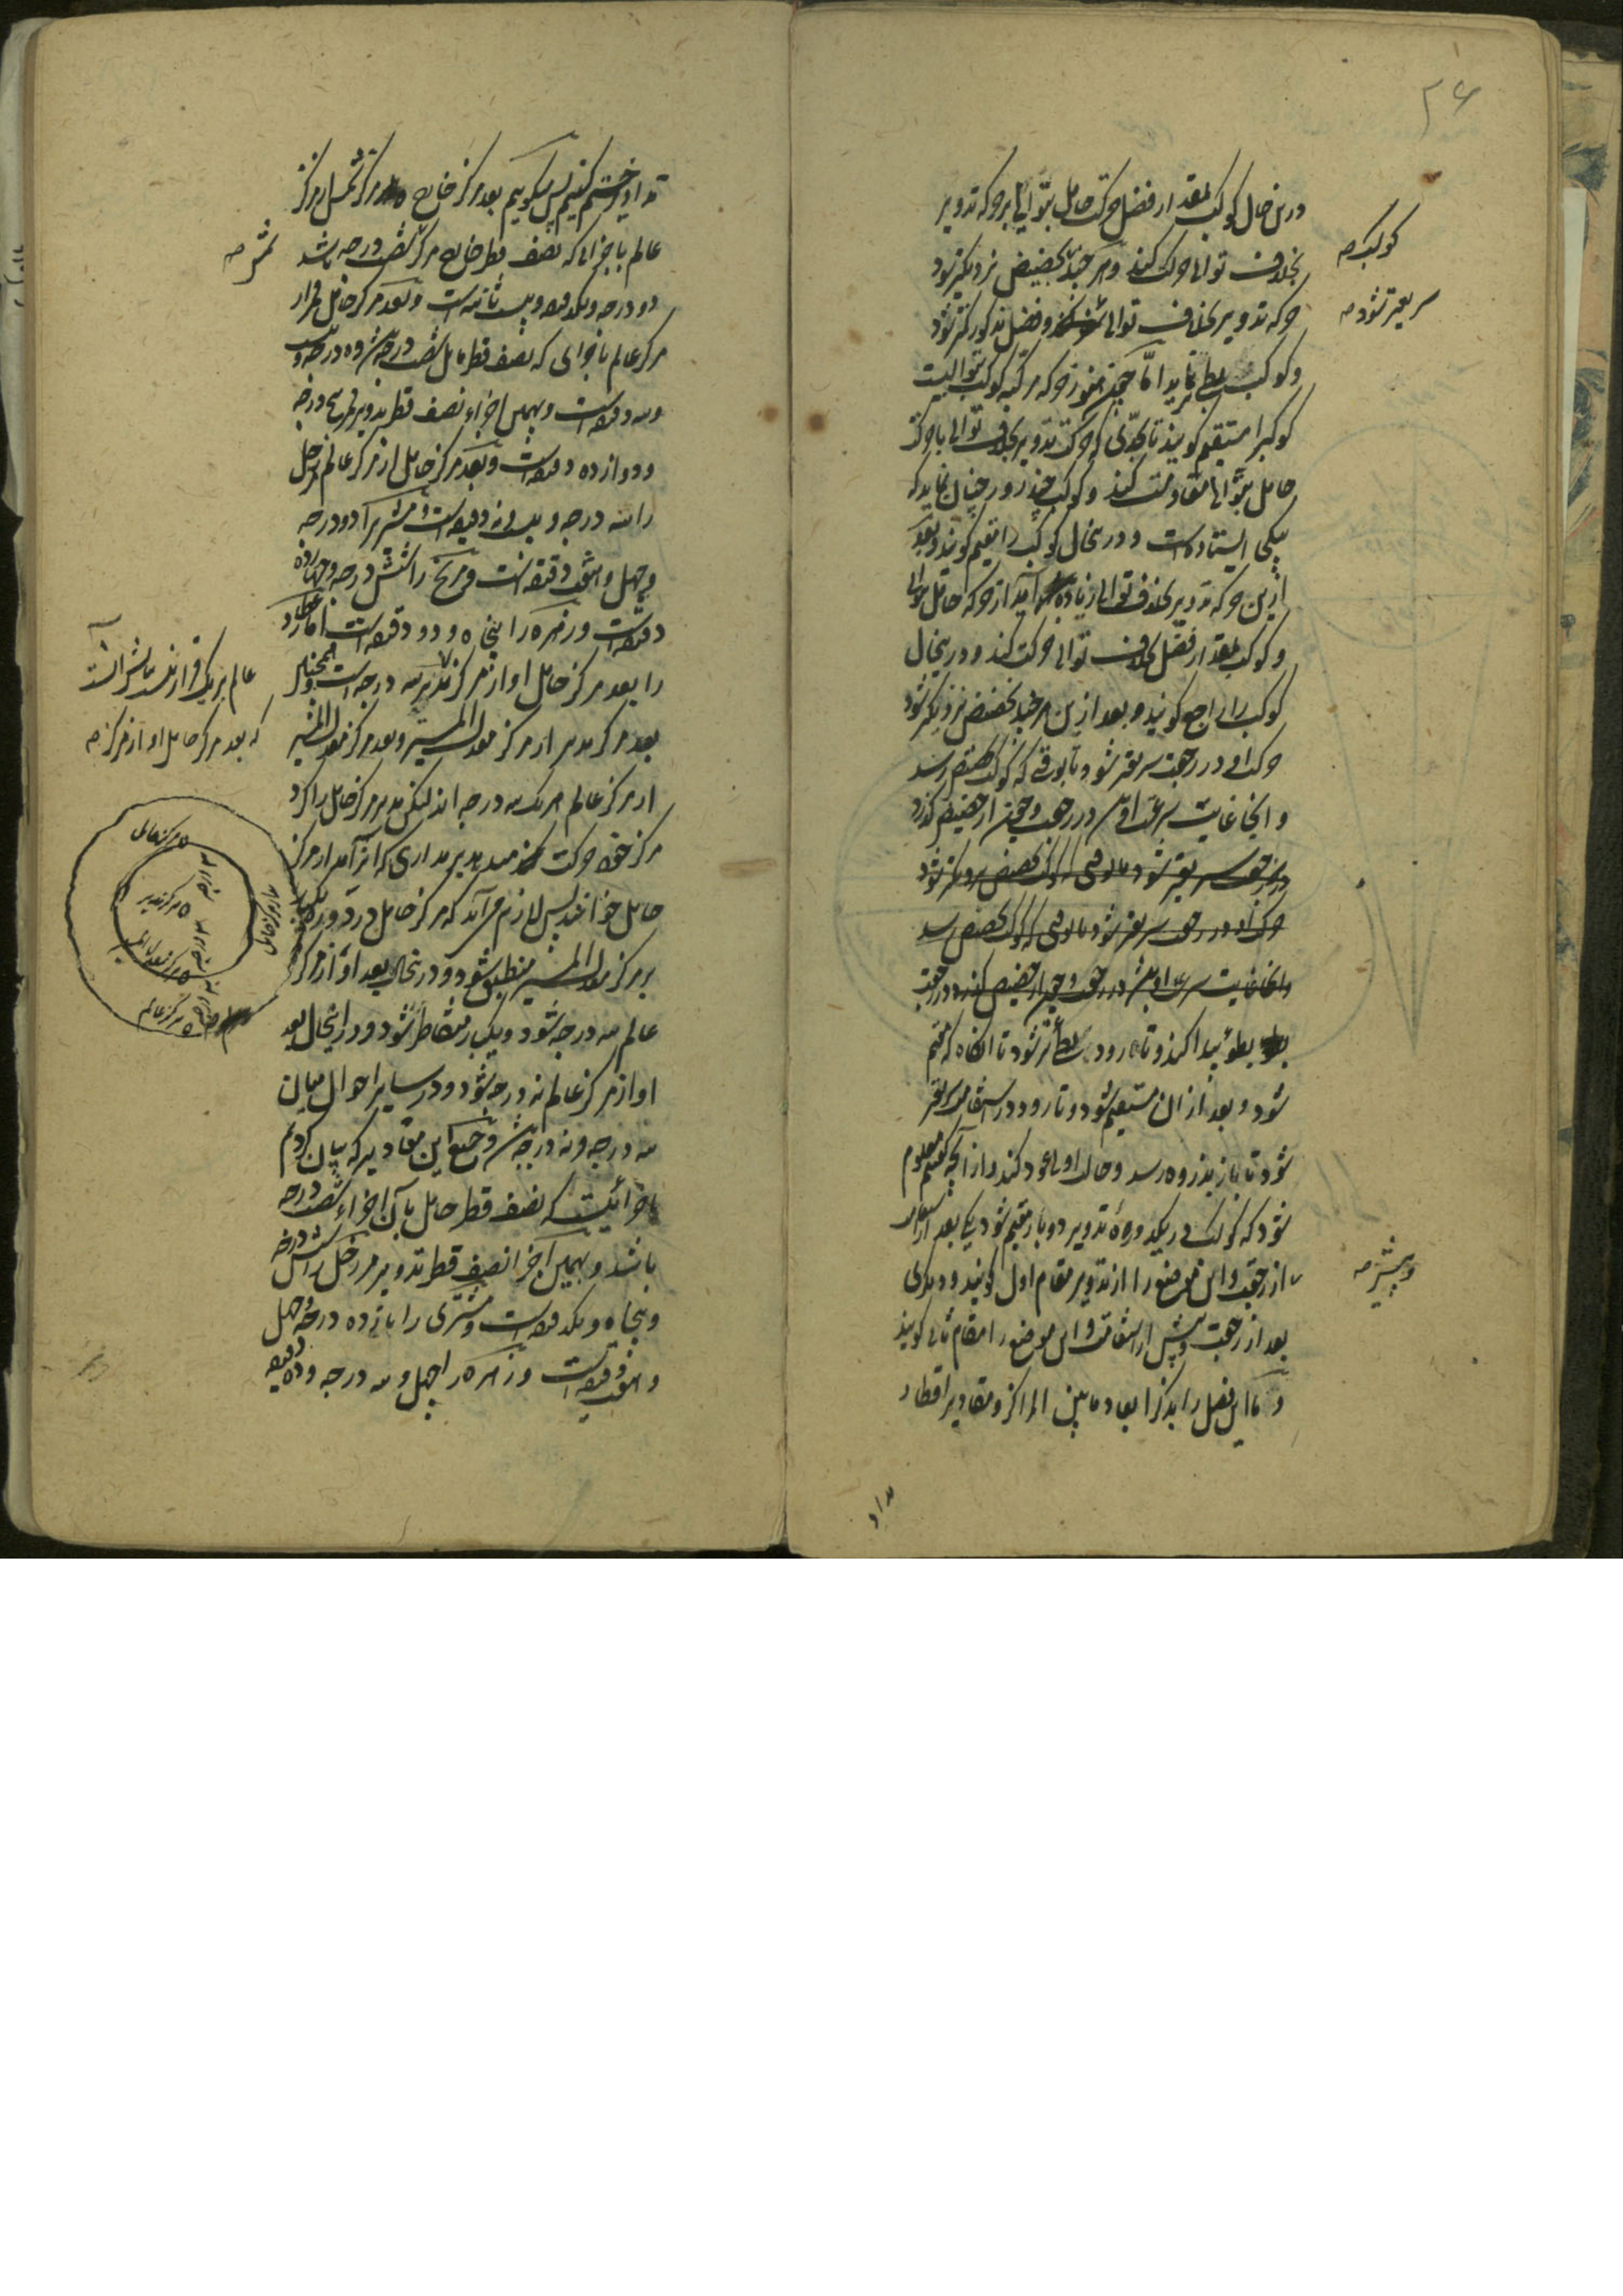 ۳۶
درین حال کوکب بمقدار فضل حرکت حامل بتوالی بر حرکة تدویر
بخلاف توالی حرکت کند و هر چند بحضیض نزدیکتر شود
کوکب صح
حرکة تدویر بخلاف توالی و فضل مذکور کمتر شود
سریعتر شود صح
و کوکب بطی نماید اما چون هنوز حرکة مرکبه کوکب بتوالیست
کوکب را مستقیم کویند تا بحدی که حرکت تدویر بخلاف توالی با حرکت
حامل بتوالی مقاومت کند و کوکب چند روز چنان نماید که
بیکجا ایستاده است و درین حال کوکب را مقیم کویند و بعد
ازین حرکة تدویر بخلاف توالی زیاده آید از حرکة حامل بتوالی
و کوکب بمقدار فضل بخلاف توالی حرکت کند و درین حال
کوکب را راجع کویند و بعد ازین هر چند بحضیض نزدیکتر شود
حرکت او در رجعت سریعتر شود تا بوقتی که کوکب بحضیض رسد
و اینجا غایت سرعت او بود در رجعت و چون از حضیض کذرد
در رجعت سریعتر شود تا بوقتی که کوکب بحضیض نزدیکتر شود
حرکت او در رجعت سریعتر شود تا بوقتی که کوکب بحضیض رسد
و اینجا غایت سرعت او باشد در رجعت و چون از حضیض کذرد در رجعت
بطوء پیدا کند و تا رود بطی‌تر شود تا انکاه که مقیم
شود و بعد از ان مستقیم شود و تا رود در استقامت سریعتر
شود تا باز بذروه رسد و حالت اولی عود کند و از آنچه کفتیم معلوم
شود که کوکب در یکدورهٔ تدویر دو بار مقیم شود یکی بعد از استقامت
و پیشتر صح
از رجعت و این موضع را از تدویر مقام اول کویند و دیکری
بعد از رجعت و پیش از استقامت و این موضع را مقام ثانی کویند
و ما این فصل را بذکر ابعاد مابین المراکز و مقادیر اقطار
تداو
تداویر ختم کنیم پس میکوییم بعد مرکز خارج مرکز شمس از مرکز
عالم باجزائی که نصف قطر خارج مرکز شصت درجه باشد
شمس صح
دو درجه و یکدقیقه و بیست ثانیه است و بعد مرکز حامل قمر از
مرکز عالم باجزائی که نصف قطر مایل شصت درجه باشد ده درجه و بیست
و سه دقیقه است و بهمین اجزاء نصف قطر تدویر قمر پنج درجه
و دوازده دقیقه است و بعد مرکز حامل از مرکز عالم زحل
را سه درجه و بیست و نه دقیقه است و مشتری را دو درجه
و چهل و هفت دقیقه است و مریخ را شش درجه و چهارده
دقیقه است و زهره را پنجاه و دو دقیقه است اما عطارد
را بعد مرکز حامل او از مرکز مدیر سه درجه است و همچنین
عالم بر یک قرار نیست بسبب آنست
که بعد مرکز حامل او از مرکز صح
بعد مرکز مدیر از مرکز معدل المسیر و بعد مرکز معدل المسیر
از مرکز عالم هر یک سه درجه اند لیکن مدیر مرکز حامل را کرد
مرکز خود حرکت میدهد بر مداری که انرا مدار مرکز
حامل خوانند پس لازم آید که مرکز حامل در دوره یکبار
بر مرکز معدل المسیر منطبق شود و درین حال بعد او از مرکز
عالم سه درجه شود و یکبار متقاطر شود و در اینحال بعد
او از مرکز عالم نه درجه شود و در سایر احوال میان
سه درجه و نه درجه باشد و جمیع این مقادیر که بیان کردیم
باجزائیست که نصف قطر حامل بآن اجزاء شصت درجه
باشد و بهمین اجزا نصف قطر تدویر مر زحل را شش درجه
و پنجاه و یکدقیقه است و مشتری را یازده درجه و چهل
و هفت دقیقه است و زهره را چهل و سه درجه و ده دقیقه
مرکز حامل
مدار مرکز حامل
سه درجه
مرکز مدیر
سه درجه
مرکز معدل المسیر
سه درجه
مرکز عالم